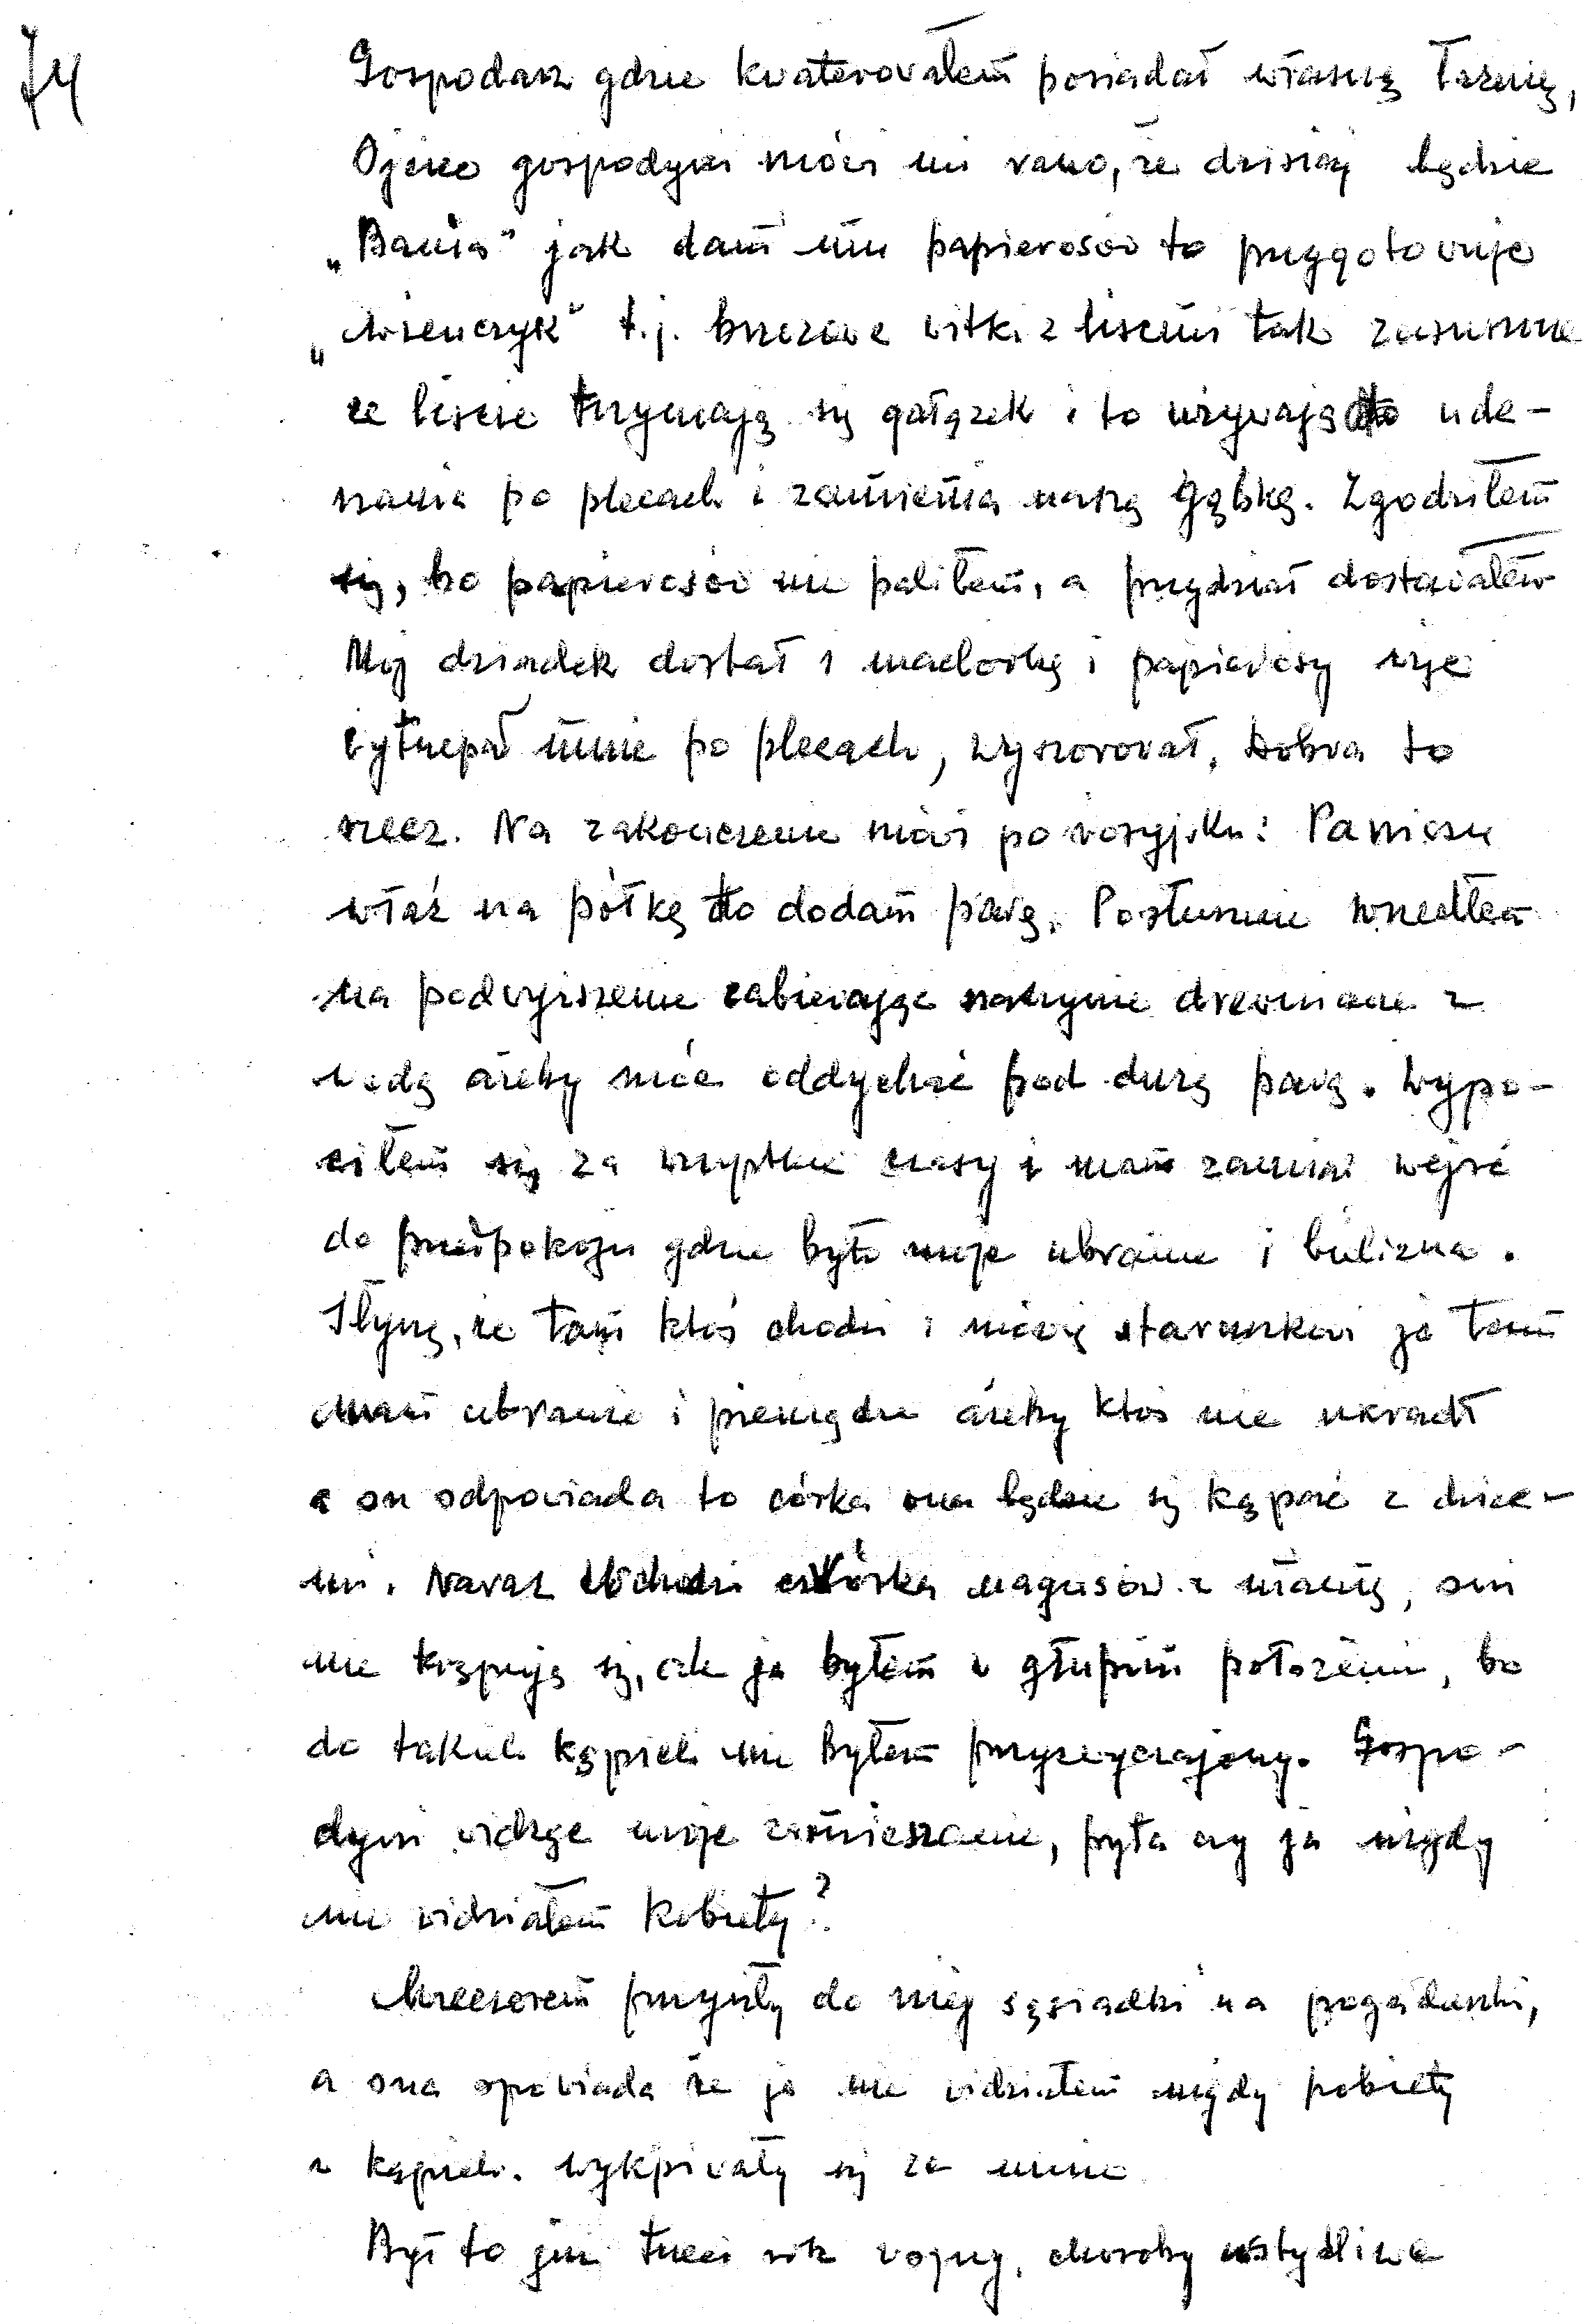 74
Gospodarz gdzie kwaterowałem posiadał własną łaźnię,
Ojciec gospodyni mówi mi rano, że dzisiaj będzie
„Bania" jak dam mu papierosów to przygotowuje
„Wienczyk" t.j. brzozowe witki z liscmi tak zasuszone
ze liscie trzymają się gałązek i to używają do ude-
rzania po plecach i zamienia naszą gąbkę. Zgodziłem
się, bo papierosów nie paliłem, a przydział dostawałem
Mój dziadek dostał 1 machorkę i papierosy i
wytrzepał mnie po plecach, wyszorował. Dobra to
rzecz. Na zakończenie mówi po rosyjsku: Panicsu
właź na półkę to dodam parę. Posłusznie wszedłem
na podwyższenie zabierając naczynie drewniane z
wodą ażeby móc oddychać pod dużą parą. Wypo-
ciłem się za wszystkie czasy i mam zamiar wejść
do przedpokoju gdzie było moje ubranie i bielizna.
Słyszę, że tam ktoś chodzi i mówię staruszkowi ja tam
mam ubranie i pieniądze ażeby ktoś nie ukradł
a on odpowiada to córka ona będzie się kąpać z dziec-
mi. Naraz wchodzi czwórka nagusów z mamą, oni
nie krępują się, ale ja byłem w głupim położeniu, bo
do takich kąpieli nie byłem przyzwyczajony. Gospo-
dyni widząc moje zamieszanie, pyta czy ja nigdy
nie widziałem kobiety?
Wieczorem przyszły do niej sąsiadki na pogaduszki,
a ona opowiada że ja nie widziałem nigdy kobiety
w kąpieli. Wykpiwały się ze mnie
Był to już trzeci rok wojny, choroby wstydliwe